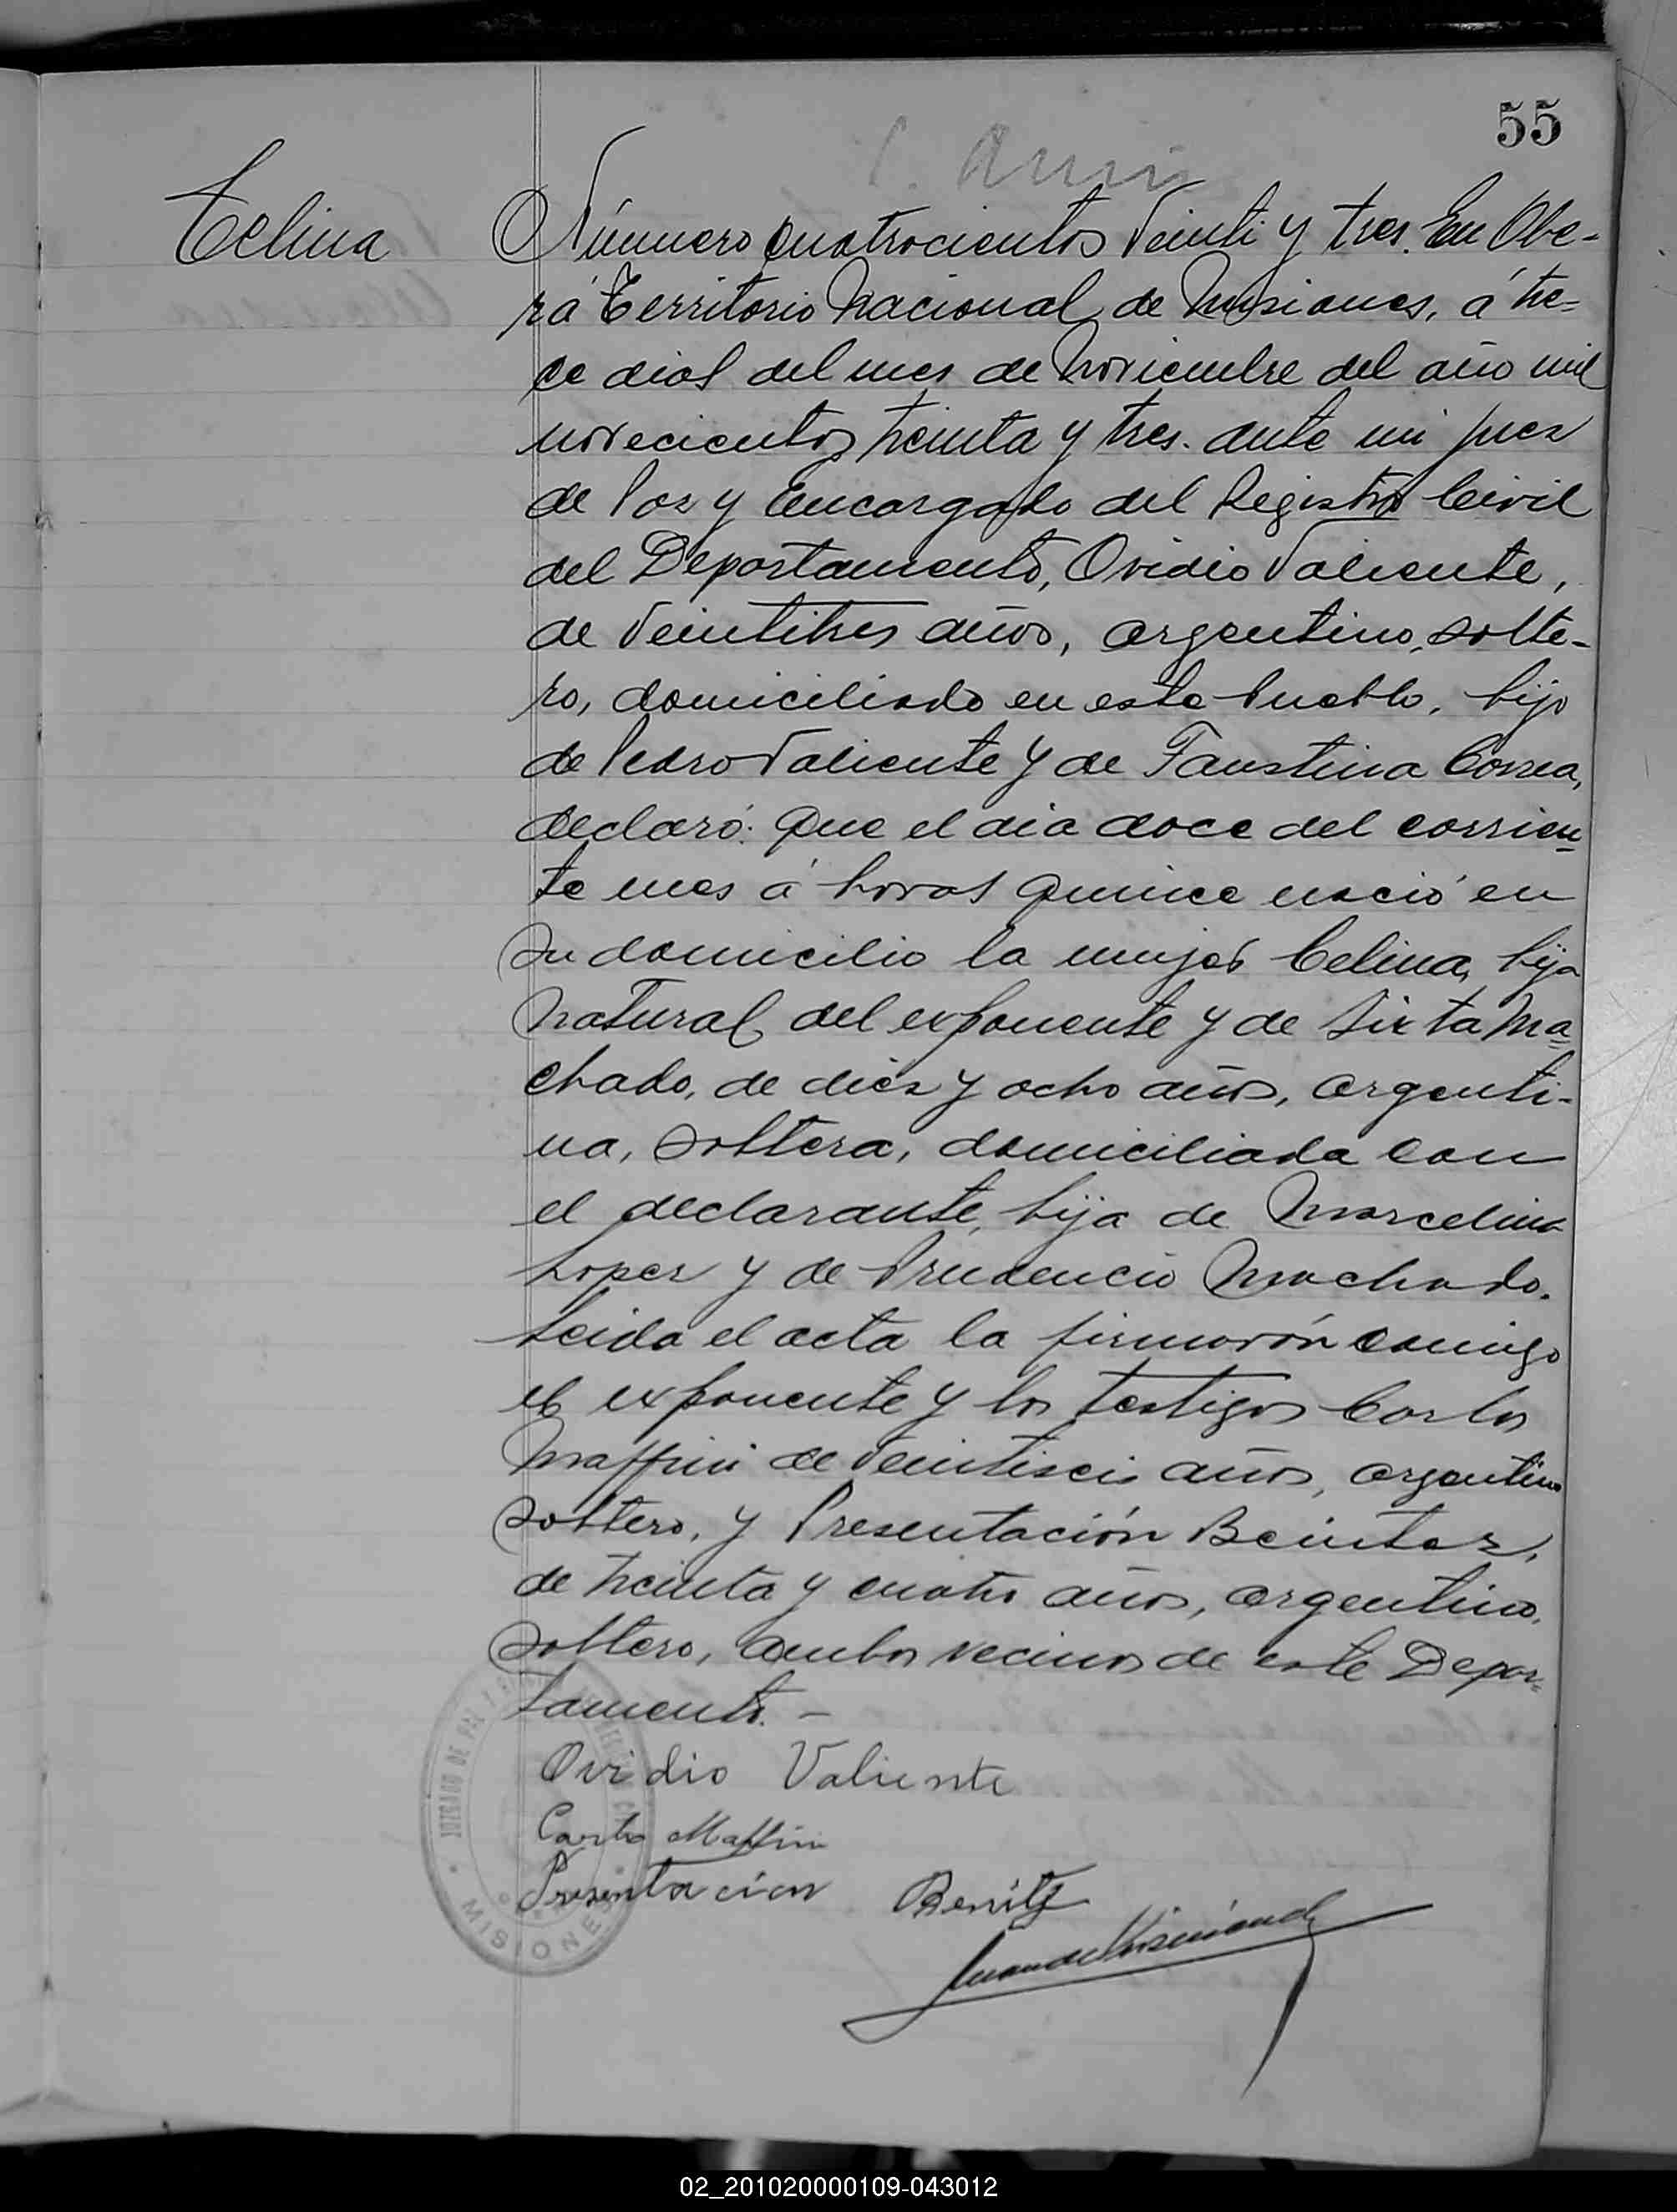 55
Celina
Número cuatrocientos Veinti y tres. En Obe-
rá Territorio Nacional de Misiones, á tre-
ce dias del mes de Noviembre del año mil
novecientos treinta y tres. ante mi juez
de Paz y Encargado del Registro Civil
del Departamento, Ovidio Valiente,
de Veintitres años, argentino, solte-
ro, domiciliado en este Pueblo, hijo
de Pedro Valiente y de Faustina Correa,
declaró: Que el dia doce del corrien-
te mes á horas quince nació en
su domicilio la mujer Celina, hija
natural del exponente y de Sixta Ma-
chado, de diez y ocho años, argenti-
na, soltera, domiciliada con
el declarante, hija de Marcelina
Lopez y de Prudencio Machado.
Leida el acta la firmarón conmigo
el exponente y los testigos Carlos
Maffini de Veintiseis años, argentino
soltero, y Presentación Beinter,
de treinta y cuatro años, argentino,
soltero, ambos vecinos de este Depar-
tamento. -
Ovidio Valiente
Carlos Maffini
Presentacion Benitz
JUZGADO DE PAZ
MISIONES
02_201020000109-043012